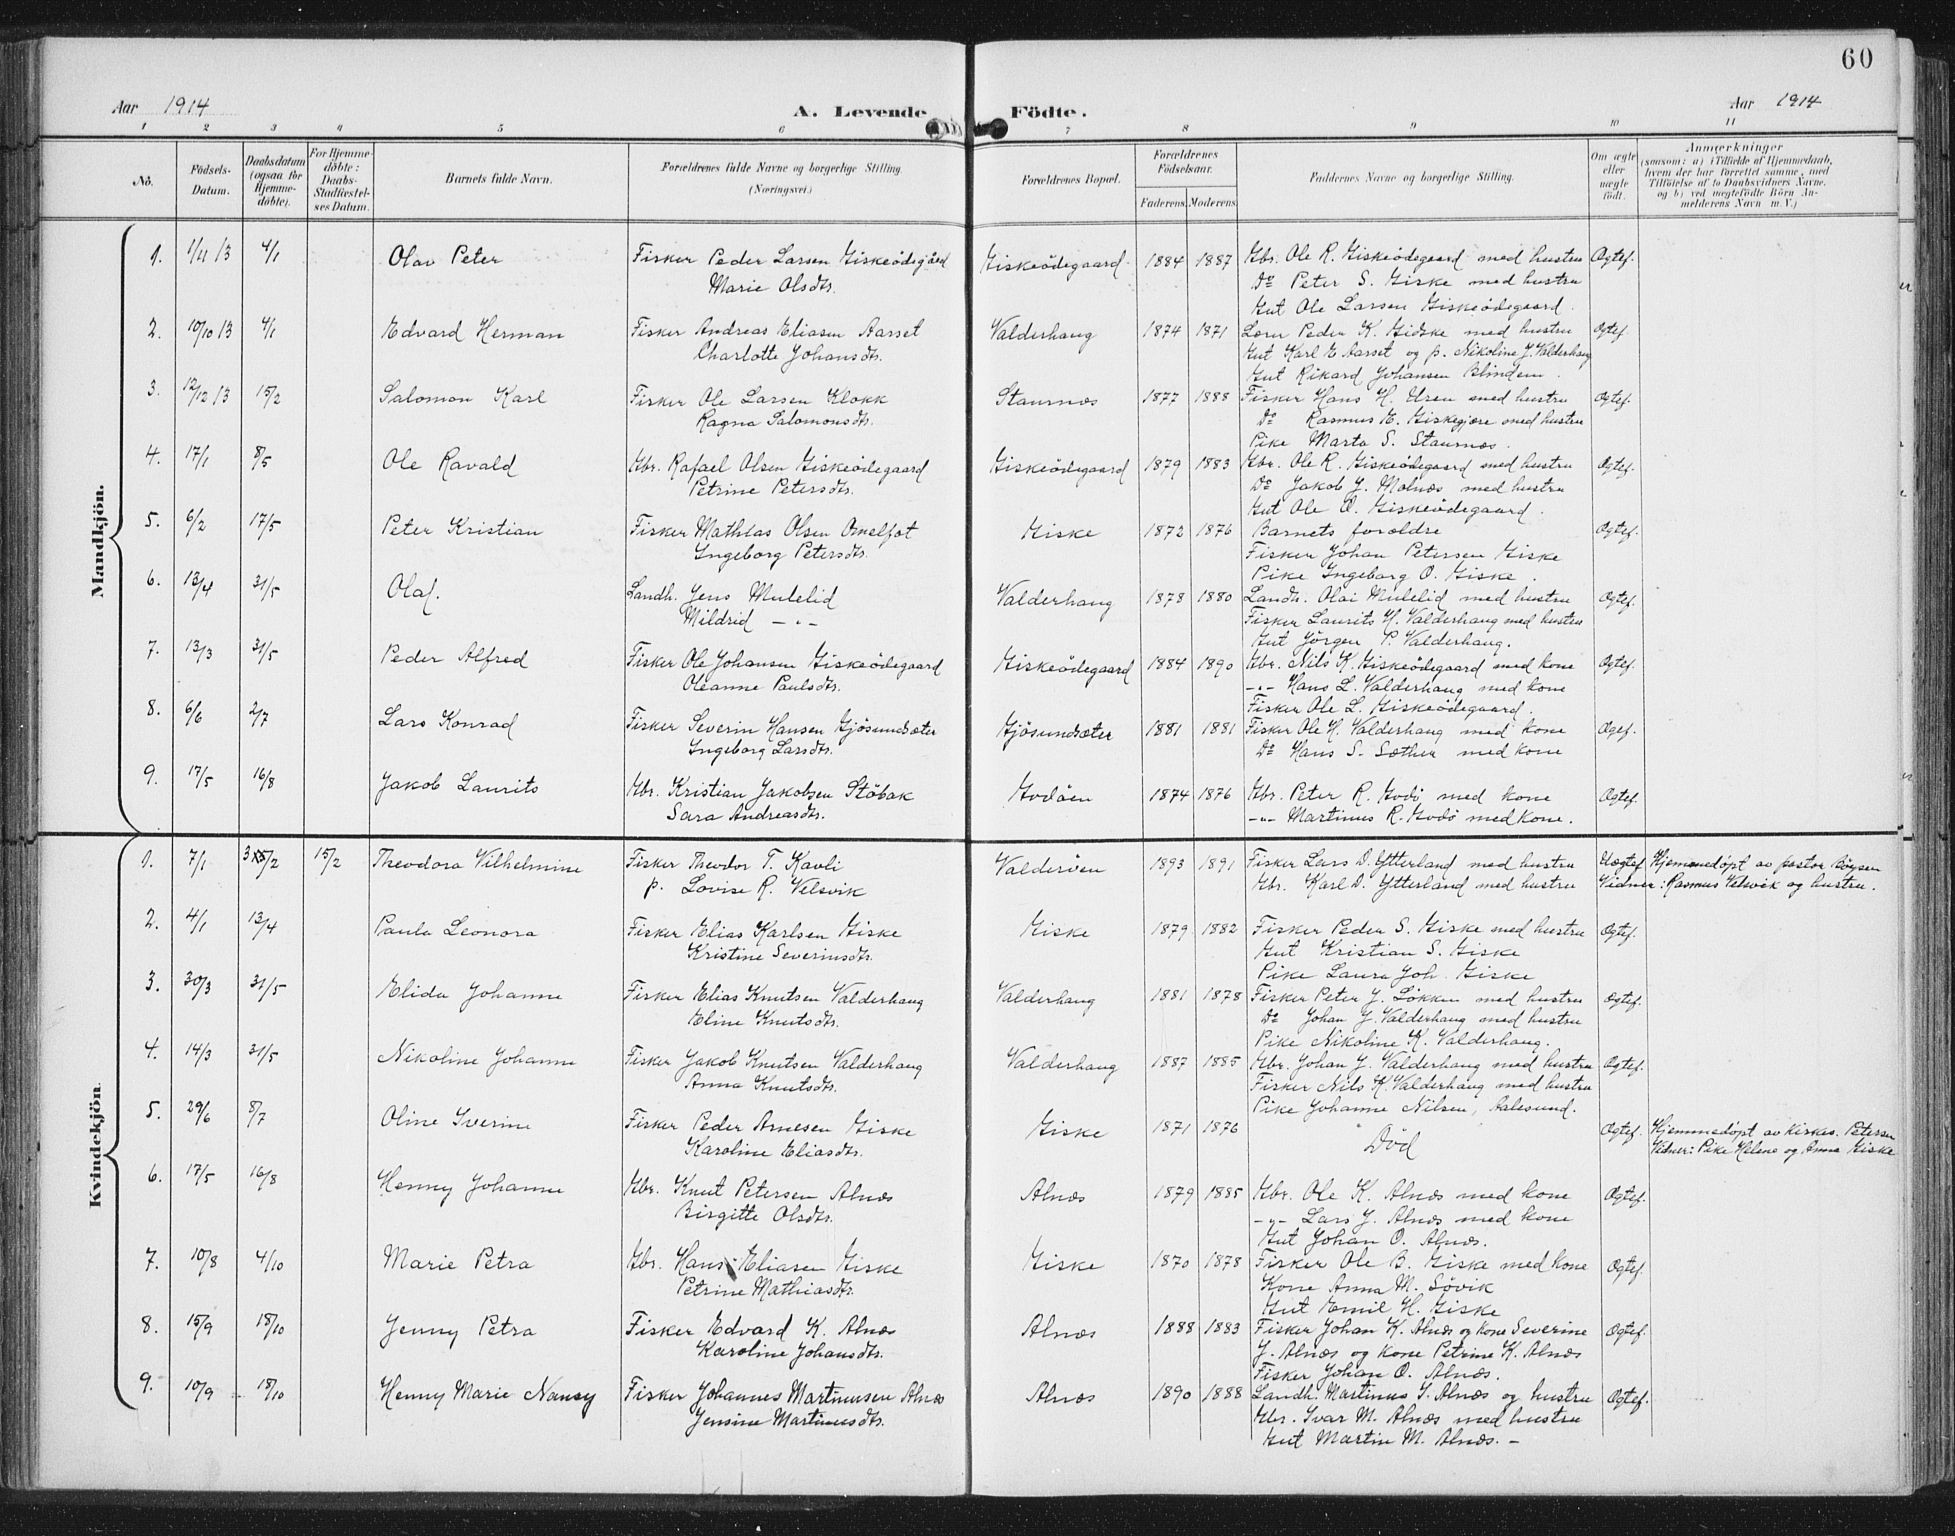 60
Aar 1914 A. Levende Födte. Aar 1914
1 2 3 4 5 6 7 8 9 10 11
No. Födsels-Datum. Daabsdatum (ogsaa for Hjemme-döbte). For Hjemme-döbte: Daabs-Stadfæstel-ses Datum. Barnets fulde Navn. Forældrenes fulde Navne og borgerlige Stilling. (Næringsvei.) Forældrenes Bopæl. Forældrenes Födselsaar. Faderens. Moderens. Faddernes Navne og borgerlige Stilling. Om ægte eller uægte födt. Anmærkninger (saasom: a) i Tilfælde af Hjemmedaab, hvem der har forrettet samme, med Tilföielse af to Daabsvidners Navne, og b) ved uegtefödte Börn An-melderens Navn m. V.)
Mandkjön.
1. 1/11 13 4/1 Olav Peter Fisker Peder Larsen Giskeödegård Giskeödegaard 1884 1887 Gbr. Ole R. Giskeödegaard med hustru Ægtef.
Marie Olsdtr. Do Peter S. Giske med hustru
Gut Ole Larsen Giskeödegaard.
2. 10/10 13 4/1 Edvard Herman Fisker Andreas Eliasen Aarset Valderhaug 1874 1871 Lærer Peder K. Gidske med hustru Ægtef.
Charlotte Johansdtr. Gut Karl E Aarset og p. Nikoline J. Valderhaug
Gut Rikard Johansen Blindem.
3. 12/12 13 15/2 Salomon Karl Fisker Ole Larsen Klokk Staurnæs 1877 1888 Fisker Hans H. Uren med hustru Ægtef.
Ragna Salomonsdtr. Do Rasmus E. Giskegjære med hustru
Pike Marta S. Staurnæs.
4. 17/1 8/5 Ole Ravald Gbr. Rafael Olsen Giskeödegaard Giskeödegaard 1879 1883 Gbr. Ole R. Giskeödegaard med hustru Ægtef.
Petrine Petersdtr. Do Jakob J. Molnæs med hustru
Gut Ole O. Giskeödegaard.
5. 6/2 17/5 Peter Kristian Fisker Mathias Olsen Giske 1872 1876 Barnets forældre Ægtef.
Ingeborg Petersdtr. Fisker Johan Petersen Giske
Pike Ingeborg O. Giske.
6. 13/4 31/5 Olaf. Landh. Jens Mulelid Valderhaug 1878 1880 Landh. Olai Mulelid med hustru Ægtef.
Mildrid — " — Fisker Laurits H. Valderhaug med hustru
Gut Jörgen P. Valderhaug.
7. 13/3 31/5 Peder Alfred Fisker Ole Johansen Giskeödegaard Giskeödegaard 1884 1890 Gbr. Nils K. Giskeödegaard med kone Ægtef.
Oleanne Paulsdtr. —"— Hans L. Valderhaug med kone
Fisker Ole L. Giskeödegaard.
8. 6/6 2/7 Lars Konrad Fisker Severin Hansen Gjösundsæter Gjösundsæter 1881 1881 Fisker Ole H. Valderhaug med kone Ægtef.
Ingeborg Larsdtr. Do Hans S. Sæther med kone
9. 17/5 16/8 Jakob Laurits Gbr. Kristian Jakobsen Stöbak Godöen 1874 1876 Gbr. Peter R. Godö med kone Ægtef.
Sara Andreasdtr. —"— Martinus R. Godö med kone.
Kvindekjön.
1. 7/1 15/2 Theodora Vilhelmine Fisker Theodor T. Kavli Valderöen 1893 1891 Fisker Lars D. Ytterland med hustru Uægtef. Hjemmedöpt av pastor
p. Lovise R. Velsvik Gbr. Karl D. Ytterland med hustru Vidner: Rasmus Velsvik og hustru.
2. 4/1 13/4 Paula Leonora Fisker Elias Karlsen Giske Giske 1879 1882 Fisker Peder S. Giske med hustru Ægtef.
Kristine Severinsdtr. Gut Kristian S. Giske
Pike Laura Joh. Giske
3. 30/3 31/5 Elida Johanne Fisker Elias Knutsen Valderhaug Valderhaug 1881 1878 Fisker Peter J. Lökken med hustru Ægtef.
Eline Knutsdtr. Do Johan J. Valderhaug med hustru
Pike Nikoline K. Valderhaug.
4. 14/3 31/5 Nikoline Johanne Fisker Jakob Knutsen Valderhaug Valderhaug 1887 1885 Gbr. Johan J. Valderhaug med hustru Ægtef.
Anna Knutsdtr. Fisker Nils K. Valderhaug med hustru
Pike Johanne Nilsen, Aalesund.
5. 29/6 8/7 Oline Iverine Fisker Peder Arnesen Giske Giske 1871 1876 Död Ægtef. Hjemmedöpt av kirkes. Petersen
Karoline Eliasdtr. Vidner: Pike Helene og Anna Giske
6. 17/5 16/8 Henny Johanne Gbr. Knut Petersen Alnæs Alnæs 1879 1885 Gbr. Ole K. Alnæs med kone Ægtef.
Birgitte Olsdtr. —"— Lars J. Alnæs med kone
Gut Johan O. Alnæs.
7. 10/8 4/10 Marie Petra Gbr. Hans Eliasen Giske Giske 1870 1878 Fisker Ole B. Giske med kone Ægtef.
Petrine Mathiasdtr. Kone Anna M. Sövik
Gut Emil H. Giske
8. 15/9 18/10 Jenny Petra Fisker Edvard K. Alnæs Alnæs 1888 1883 Fisker Johan K. Alnæs og kone Severine Ægtef.
Karoline Johansdtr. J. Alnæs og kone Petrine K. Alnæs
Fisker Johan O. Alnæs.
9. 10/9 18/10 Henny Marie Nansy Fisker Johannes Martinusen Alnæs Alnæs 1890 1888 Landh. Martinus I. Alnæs og hustru Ægtef.
Jensine Martinusdtr. Gbr. Ivar M. Alnæs med hustru
Gut Martin M. Alnæs. —